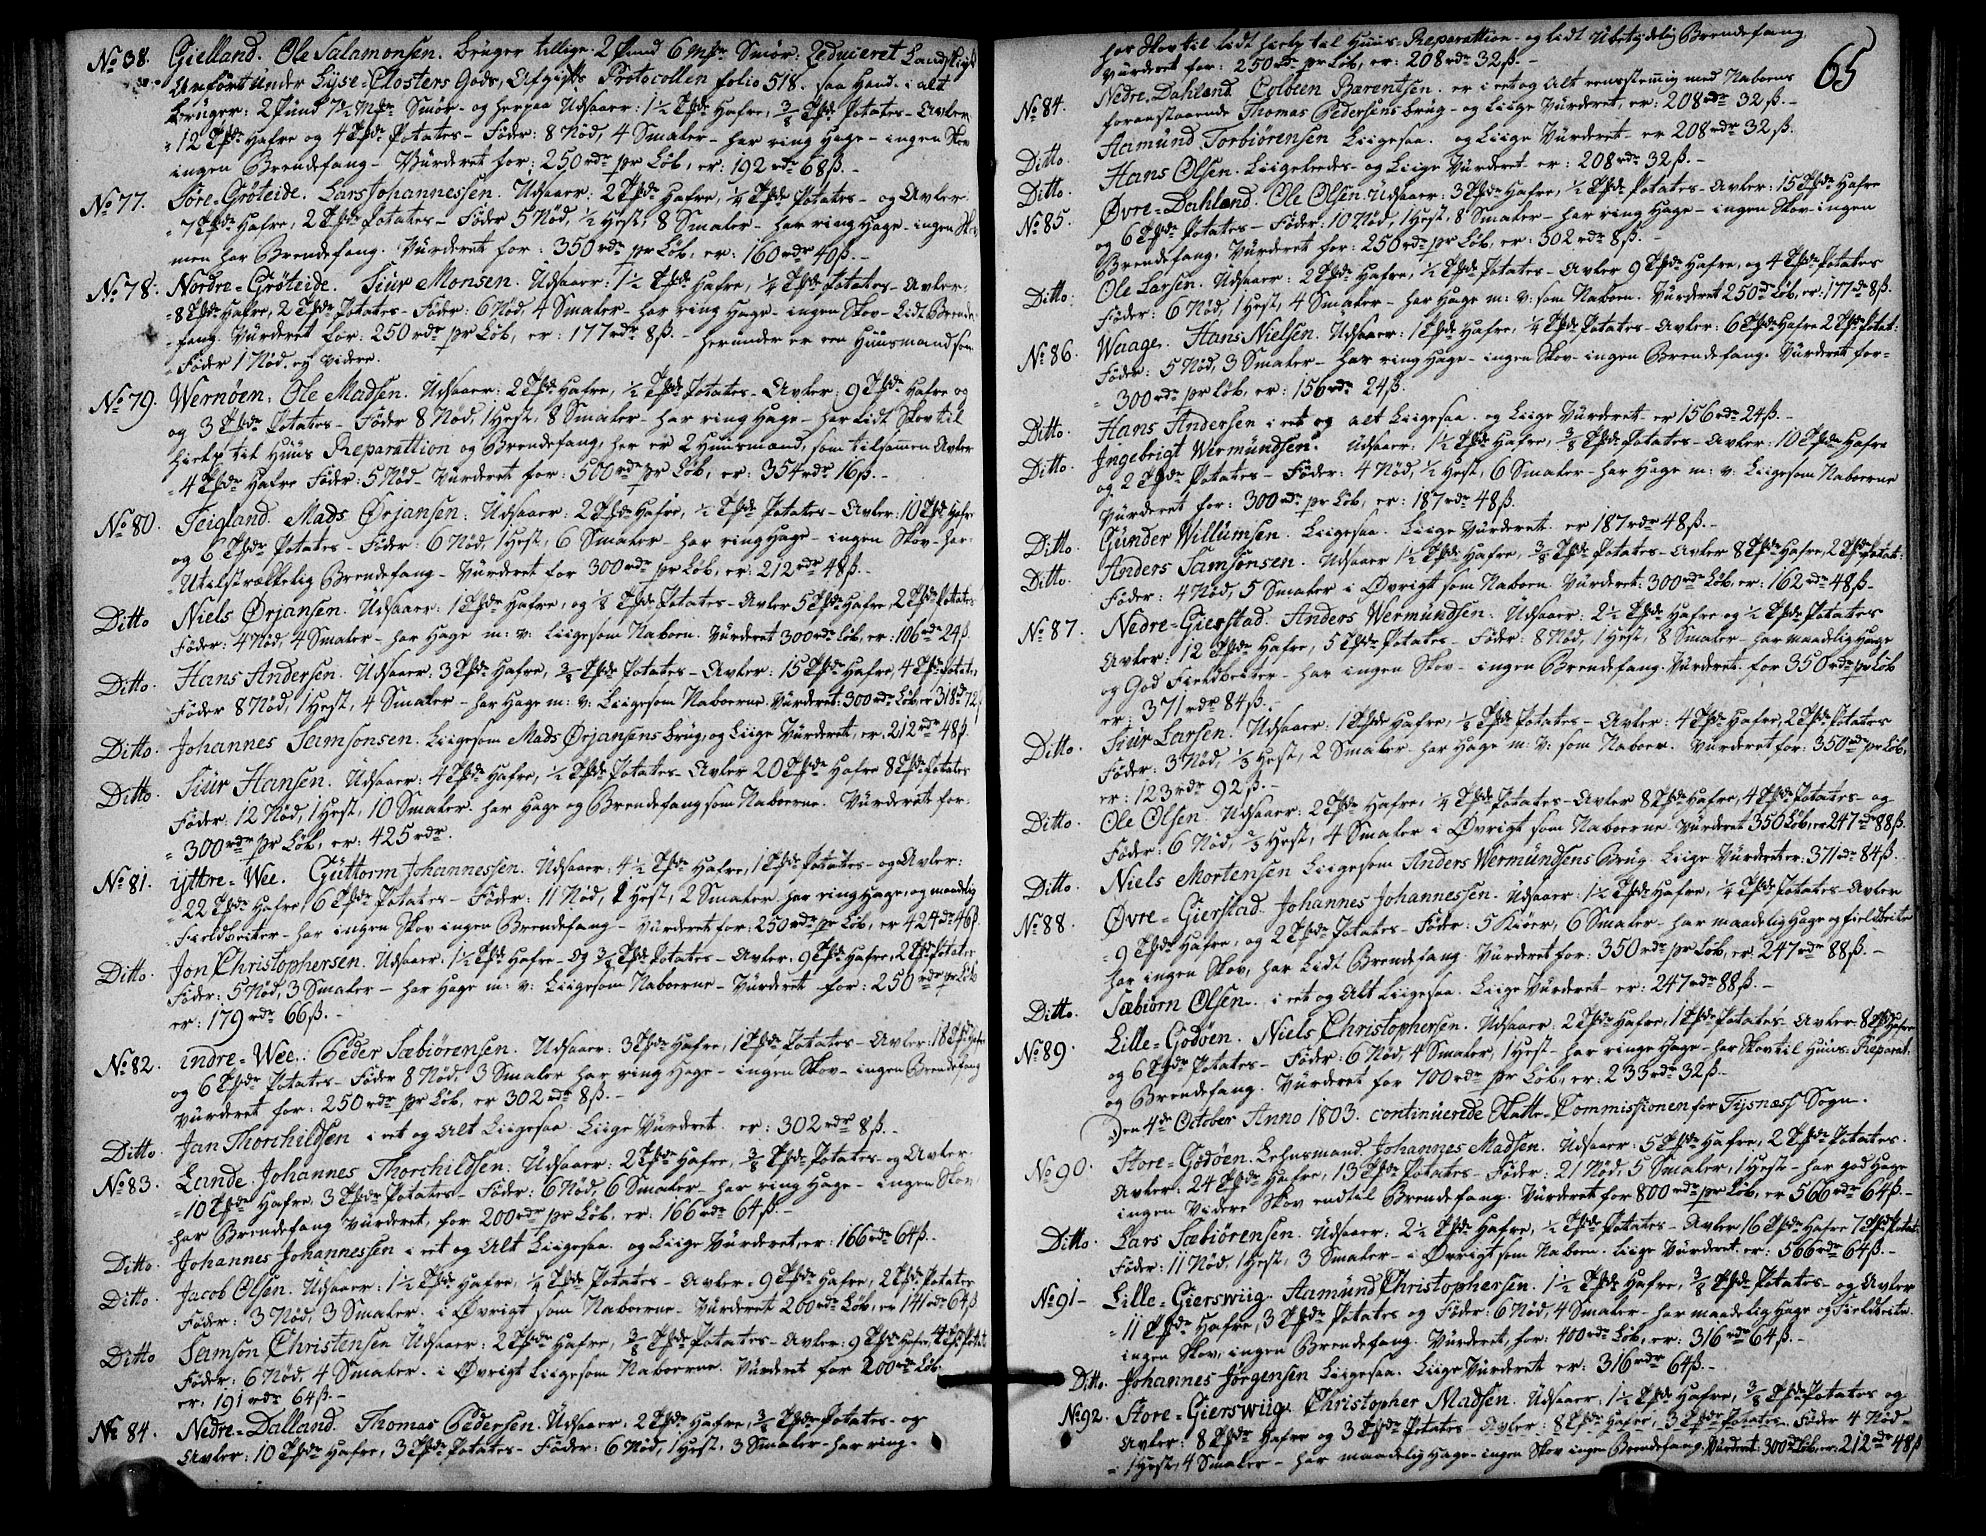 No 38. Gielland. Ole Salamonsen. bruger tillige 2 Pund 6 Mkr Smør. Reduceret Landskyld
Anført Under Lyse Closters Gods, Afgifts Protocollen folio 518. saa Hand. i alt
bruger: 2 Pund 7½ Mkr Smør - og herpaa Udsaaer: 1½ Tønde Hafre, 3/8 Tønde Potates - Avler
12 Tønder Hafre og 4 Tønder Potates - Føder: 8 Nød, 4 Smaler - har ring Hage - ingen Skov
ingen Brendefang - Vurderet for: 250 rdr pr Løb, er: 192 rdr 68 ß. -
No 77. Søre-Grøteide. Lars Johannessen. Udsaaer: 2 Tønder Hafre, ¼ Tønde Potates - og Avler
7 Tønder Hafre, 2 Tønder Potates - Føder 5 Nød, ½ Hest, 8 Smaler - har ring Hage - ingen Skov
men har Brendefang. Vurderet for: 350 rdr pr Løb, er: 160 rdr 40 ß. -
No 78. Nordre-Grøteide. Siur Monsen. Udsaaer: 1½ Tønde Hafre, ¼ Tønde Potates - Avler:
8 Tønder Hafre, 2 Tønder Potates - Føder: 6 Nød, 4 Smaler - har ring Hage - ingen Skov - Lidt Brende-
fang. Vurderet for: 250 rdr pr Løb, er: 177 rdr 8 ß. - herunder er een Huusmand som
Føder 1 Nød, ey videre.
No 79. Wernøen. Ole Madsen. Udsaaer: 2 Tønder Hafre, ½ Tønde Potates - Avler: 9 Tønder Hafre og
og 3 Tønder Potates - Føder 8 Nød, 1 Hest, 8 Smaler - har ring Hage - har Lidt Skov til
hielp til Huus Reparattion og Brendefang, her er 2 Huusmænd, som tilsammen Avler
4 Tønder Hafre Føder: 5 Nød - Vurderet for: 500 rdr pr Løb, er: 354 rdr 16 ß. -
No 80. Teigland. Mads Ørjansen: Udsaaer: 2 Tønder Hafre, ½ Tønde Potates - Avler: 10 Tønder Hafre
og 6 Tønder Potates - Føder: 6 Nød, 1 Hest, 6 Smaler - har ring Hage - ingen Skov - har
Utilstrækkelig Brendefang - Vurderet for 300 rdr pr Løb, er: 212 rdr 48 ß. -
Ditto Niels Ørjansen. Udsaaer: 1 Tønde Hafre, og 1/8 Tønde Potates - Avler 5 Tønder Hafre, 2 Tønder Potates
Føder: 4 Nød, 4 Smaler - har Hage m: v: Liigesom Naboen. Vurderet 300 rdr Løb, er: 106 rdr 24 ß.
Ditto. Hans Andersen. Udsaaer: 3 Tønder Hafre, 3/8 Tønde Potates - Avler: 15 Tønder Hafre, 4 Tønder Potates
Føder 8 Nød, 1 Hest, 4 Smaler - har Hage m: v: Liigesom Naboerne. Vurderet: 300 rdr Løb, er 318 rdr 72
Ditto. Johannes Samsonsen. Liigesom Mads Ørjansens brug, og Liige Vurderet, er: 212 rdr 48 ß.
Ditto. Siur Hansen. Udsaaer: 4 Tønder Hafre, ½ Tønde Potates - Avler 20 Tønder Hafre 8 Tønder Potates
Føder: 12 Nød, 1 Hest, 10 Smaler. har Hage og Brendefang som Naboerne. Vurderet for:
300 rdr pr Løb, er: 425 rdr.
No 81. ijttre-Wee. Guttorm Johannessen. Udsaaer: 4½ Tønde Hafre, 1 Tønde Potates - og Avler:
22 Tønder Hafre, 6 Tønder Potates - Føder: 11 Nød, 1 Hest, 2 Smaler. har ring Hage, og maadelig
Fieldbeiter - har ingen Skov ingen Brendefang - Vurderet for: 250 rdr pr Løb, er 424 rdr 46 ß.
Ditto. Jon Christophersen. Udsaaer: 1½ Tønde Hafre - og 3/8 Tønde Potates - Avler: 9 Tønder Hafre, 2 Tønder Potates
Føder: 5 Nød, 3 Smaler - har Hage m: v: Liigesom Naboerne - Vurderet for: 250 rdr pr Løb
er: 179 rdr 66 ß. -
No 82. indre-Wee. Peder Sæbiørensen. Udsaaer: 3 Tønder Hafre, 1 Tønde Potates - Avler: 18 Tønder Hafre
og 6 Tønder Potates - Føder 8 Nød, 3 Smaler har ring Hage - ingen Skov - ingen Brendefang
Vurderet for: 250 rdr pr Løb, er 302 rdr 8 ß. -
Ditto. Jan Thorchildsen i eet og Alt Liigesaa. Liige Vurderet. er: 302 rdr 8 ß. -
No 83. Lande. Johannes Thorchildsen. Udsaaer: 2 Tønder Hafre, 3/8 Tønde Potates - og Avler
10 Tønder Hafre, 3 Tønder Potates - Føder: 6 Nød, 6 Smaler - har ring Hage - ingen Skov
har Brendefang Vurderet, for 200 rdr pr Løb, er: 166 rdr 64 ß. -
Ditto. Johannes Johannessen i eet og Alt Liigesaa. og Liige Vurderet, er: 166 rdr 64 ß.
Ditto. Jacob Olsen. Udsaaer: 1½ Tønde Hafre, ¼ Tønde Potates - Avler 9 Tønder Hafre, 2 Tønder Potates
Føder: 3 Nød, 3 Smaler. i Øvrigt som Naboerne - Vurderet 200 rdr Løb, er 141 rdr 64 ß.
Ditto Samson Christensen Udsaaer: 2 Tønder Hafre, 3/8 Tønde Potates - Avler: 9 Tønder Hafre, 4 Tønder Potates
Føder: 6 Nød, 4 Smaler. i Øvrigt Liigesom Naboerne. Vurderet for 200 rdr Løb
er: 191 rdr 64 ß. -
No 84. Nedre-Dalland. Thomas Pedersen. Udsaaer: 2 Tønder Hafre, 3/8 Tønde Potates - og
Avler: 10 Tønder Hafre, 3 Tønder Potates - Føder: 6 Nød, 1 Hest, 3 Smaler - har ring-
65
har Skov til lidt hielp til Huus-Reparattion - og lidt Ubetydelig Brendefang
Vurderet for: 250 rdr pr Løb, er: 208 rdr 32 ß. -
No 84. Nedre-Dahland Colbeen Bærentsen. er i eet og Alt eensstemmig med Naboens
foranstaaende Thomas Pedersens brug - og Liige Vurderet, er: 208 rdr 32 ß. -
Ditto. Aamund Torbiørensen Liigesaa. og Liige Vurderet - er 208 rdr 32 ß.
Ditto Hans Olsen. Liigeledes - og Liige Vurderet. er: 208 rdr 32 ß. -
No 85. Øvre-Dahland. Ole Olsen. Udsaaer: 3 Tønder Hafre, ½ Tønde Potates - Avler: 15 Tønder Hafre
og 6 Tønder Potates - Føder: 10 Nød, 1 Hest, 8 Smaler - har ring Hage - ingen Skov - ingen
Brendefang. Vurderet for: 250 rdr pr Løb, er: 302 rdr 8 ß. -
Ditto. Ole Larsen. Udsaaer: 2 Tønder Hafre, ½ Tønde Potates - Avler 9 Tønder Hafre, og 4 Tønder Potates
Føder: 6 Nød, 1 Hest, 4 Smaler - har Hage m: v: som Naboen. Vurderet 250 rdr Løb, er: 177 rdr 8 ß.
No 86. Waage. Hans Nielsen. Udsaaer: 1 Tønde Hafre, ¼ Tønde Potates - Avler: 6 Tønder Hafre 2 Tønder Potat:
Føder: 5 Nød, 3 Smaler - har ring Hage - ingen Skov - ingen Brendefang. Vurderet for-
300 rdr pr Løb, er: 156 rdr 24 ß.
Ditto. Hans Andersen i eet og alt Liigesaa. og Liige Vurderet er 156 rdr 24 ß. -
Ditto. Ingebrigt Wermundsen. Udsaaer: 1½ Tønde Hafre, 3/8 Tønde Potates - Avler: 10 Tønder Hafre
og 2 Tønder Potates - Føder: 4 Nød, ½ Hest, 6 Smaler - har Hage m: v: Liigesom Naboerne
Vurderet for: 300 rdr pr Løb, er: 187 rdr 48 ß.
Ditto. Gunder Willumsen. Liigesaa. Liige Vurderet. er 187 rdr 48 ß. -
Ditto. Anders Samsonsen. Udsaaer 1½ Tønde Hafre, 3/8 Tønde Potates - Avler 8 Tønder Hafre, 2 Tønder Potat:
Føder: 4 Nød, 5 Smaler i Øvrigt som Naboen. Vurderet: 300 rdr Løb, er: 162 rdr 48 ß.
No 87. Nedre-Gierstad. Anders Wermundsen: Udsaaer: 2½ Tønde Hafre og ½ Tønde Potates
Avler: 12 Tønder Hafre, 5 Tønder Potates - Føder: 8 Nød, 1 Hest, 8 Smaler - har maadelig Hage
og God Fieldbeiter - har ingen Skov - ingen Brendefang. Vurderet. for 350 rdr pr Løb
er: 371 rdr 84 ß. -
Ditto. Siur Larsen. Udsaaer: 1 Tønde Hafre, 1/8 Tønde Potates - Avler: 4 Tønder Hafre, 2 Tønder Potates
Føder: 3 Nød, 1/3 Hest, 2 Smaler - har Hage m: v: som Naboer. Vurderet for: 350 rdr pr Løb,
er: 123 rdr 92 ß. -
Ditto. Ole Olsen. Udsaaer: 2 Tønder Hafre, ¼ Tønde Potates - Avler 8 Tønder Hafre, 4 Tønder Potates - og
Føder: 6 Nød, 2/3 Hest, 4 Smaler i Øvrigt som Naboerne. Vurderet 350 Løb, er 247 rdr 88 ß.
Ditto. Niels Mortensen Liigesom Anders Wermundsens Brug. Liige Vurderet er: 371 rdr 84 ß. -
No 88. Øvre-Gierstad. Johannes Johannessen. Udsaaer: 1½ Tønde Hafre, ¼ Tønde Potates - Avler
9 Tønder Hafre, og 2 Tønder Potates - Føder: 5 Kiøer, 6 Smaler - har maadelig Hage og fieldbeiter
har ingen Skov, har Lidt Brendefang Vurderet for: 350 rdr pr Løb, er: 247 rdr 88 ß. -
Ditto. Sæbiørn Olsen. i eet og Alt Liigesaa. Liige Vurderet - er: 247 rdr 88 ß. -
No 89. Lille-Godøen. Niels Christophersen. Udsaaer: 2 Tønder Hafre, 1 Tønde Potates - Avler 8 Tønder Hafre
og 6 Tønder Potates - Føder: 6 Nød, 4 Smaler, 1 Hest - har ringe Hage - har Skov til Huus-Reparat.
og Brendefang. Vurderet for 700 rdr pr Løb, er: 233 rdr 32 ß. -
Den 4de October Anno 1803. continuerede Skatte-Commissionen for Tysnæss Sogn.
No 90. Store-Godøen. Lehnsmand Johannes Madsen. Udsaaer: 5 Tønder Hafre, 2 Tønder Potates.
Avler: 24 Tønder Hafre, 13 Tønder Potates - Føder: 21 Nød, 5 Smaler, 1 Hest - har god Hage
ingen Videre Skov end til Brendefang. Vurderet for 800 rdr pr Løb, er 566 rdr 64 ß. -
Ditto. Lars Sæbiørensen. Udsaaer: 2½ Tønde Hafre, ½ Tønde Potates - Avler 16 Tønder Hafre 7 Tønder Potat
Føder: 11 Nød, 1 Hest, 3 Smaler - i Øvrigt som Naboen. Liige Vurderet er: 566 rdr 64 ß. -
No 91 - Lille-Gierswiig. Aamund Christophersen. 1½ Tønde Hafre, 3/8 Tønde Potates - og Avler
11 Tønder Hafre, 3 Tønder Potates og Føder: 6 Nød, 4 Smaler - har maadelig Hage og Fieldbeite
ingen Skov, ingen Brendefang. Vurderet, for: 400 rdr Løb, er: 316 rdr 64 ß. -
Ditto. Johannes Jørgensen Liigesaa. Liige Vurderet er: 316 rdr 64 ß. -
No 92. Store-Gierswiig. Christopher Madsen. Udsaaer, 1½ Tønde Hafre, 3/8 Tønde Potates og
Avler: 8 Tønder Hafre og 3 Tønder Potates - Avler: 8 Tønder Hafre, 3 Tønder Potates. Føder 4 Nød-
1 Hest, 4 Smaler - har maadelig Hage - ingen Skov ingen Brendefang, Vurderet: 300 rdr Løb, er: 212 rdr 48 ß